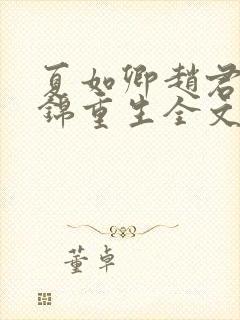 夏如卿趙君
錦重生全文
董卓